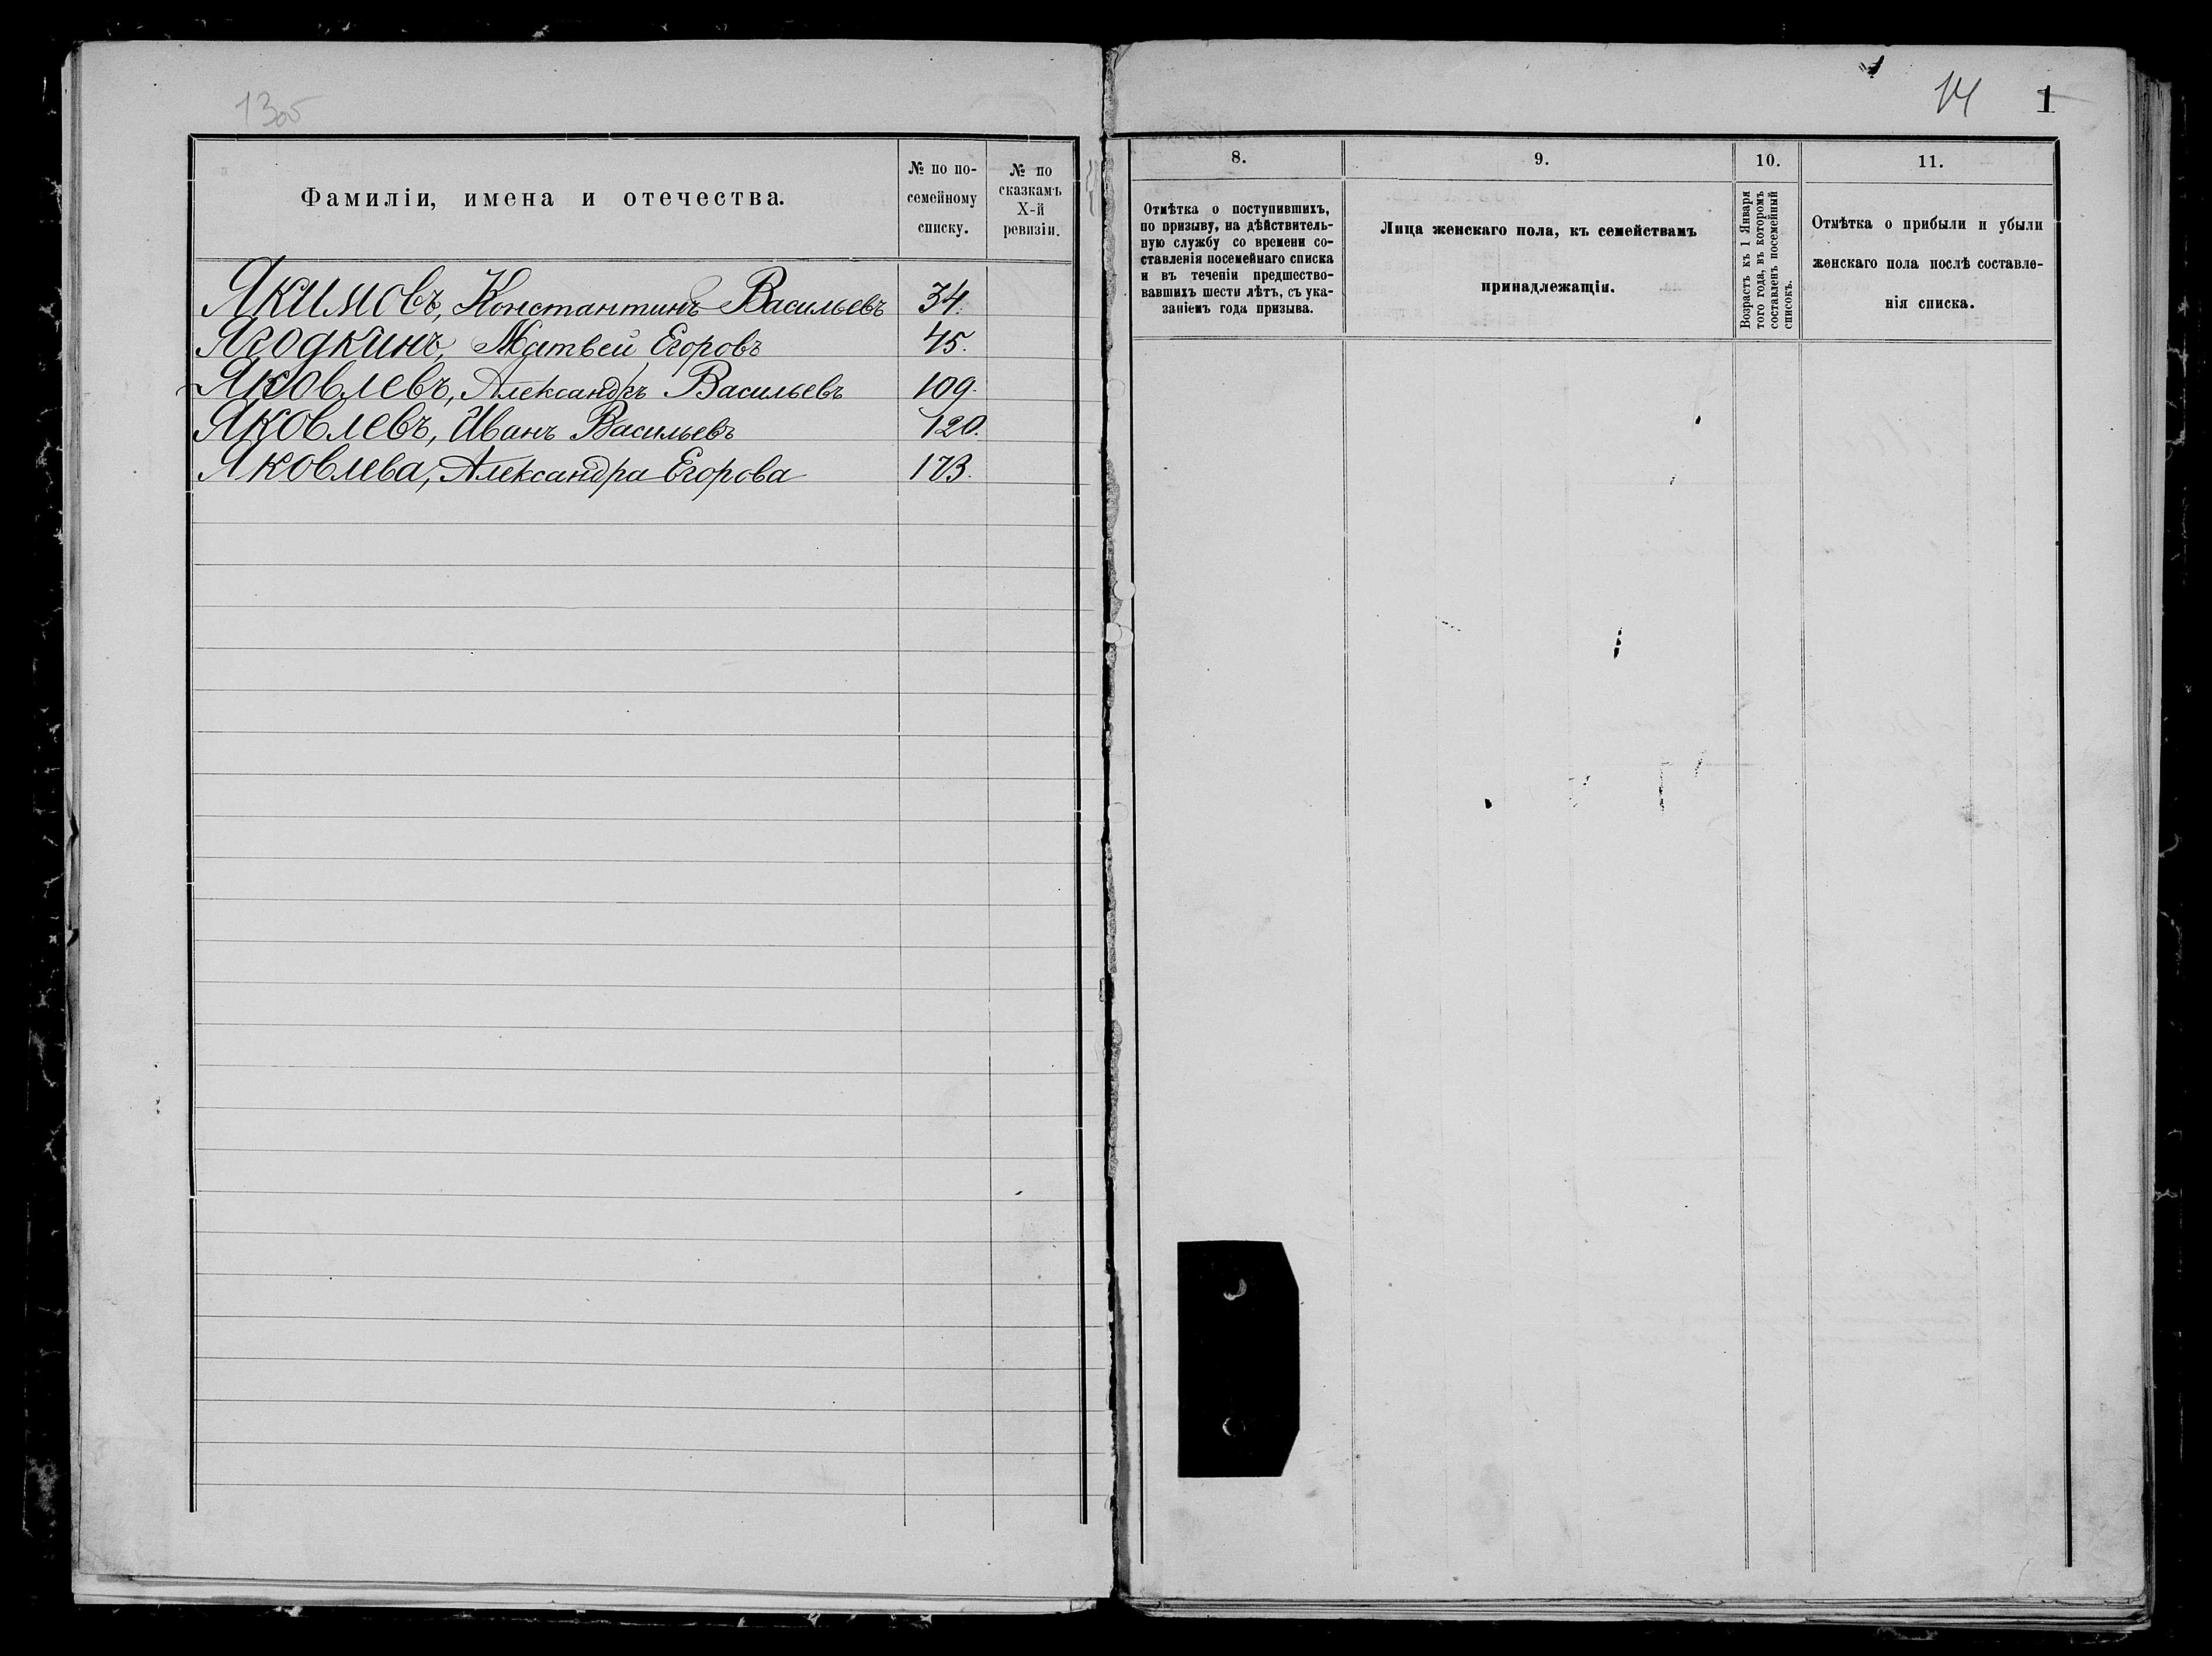 13об
Фамиліи, имена и отечества.
№ по по-
семейному
списку.
№ по
сказкамъ
X-й
ревизіи.
Якимовъ, Константинъ Васильевъ 34.
Ягодкинъ, Матвей Егоровъ 45.
Яковлевъ, Александръ Васильевъ 109.
Яковлевъ, Иванъ Васильевъ 120.
Яковлева, Александра Егорова 173.
14 1
8.
Отмѣтка о поступившихъ,
по призыву, на дѣйствитель-
ную службу со времени со-
ставленія посемейнаго списка
и въ теченіи предшество-
вавшихъ шести лѣтъ, съ ука-
заніемъ года призыва.
9.
Лица женскаго пола, къ семействамъ
принадлежащія.
10.
Возрастъ къ 1 Января
того года, въ которомъ
составленъ посемейный
списокъ.
11.
Отмѣтка о прибыли и убыли
женскаго пола послѣ составле-
нія списка.